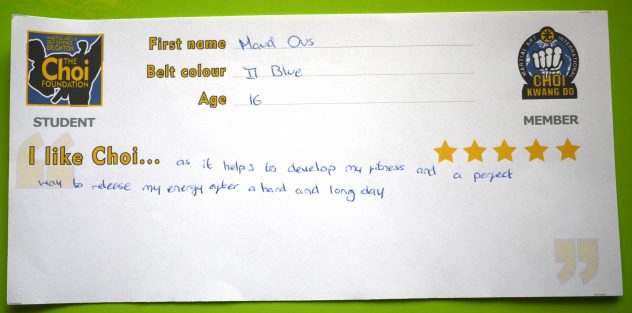 MARTIAL ARTS &
SELF-DEFENCE
BRIGHTON
THE
Choi
FOUNDATION
STUDENT
First name
Belt colour II Blue
Age 16
MARTIAL ART INTERNATIONAL
CHOI
KWANG DO
MEMBER
I like Choi... as it helps to develop my fitness and a perfect
way to release my energy after a hard and long day